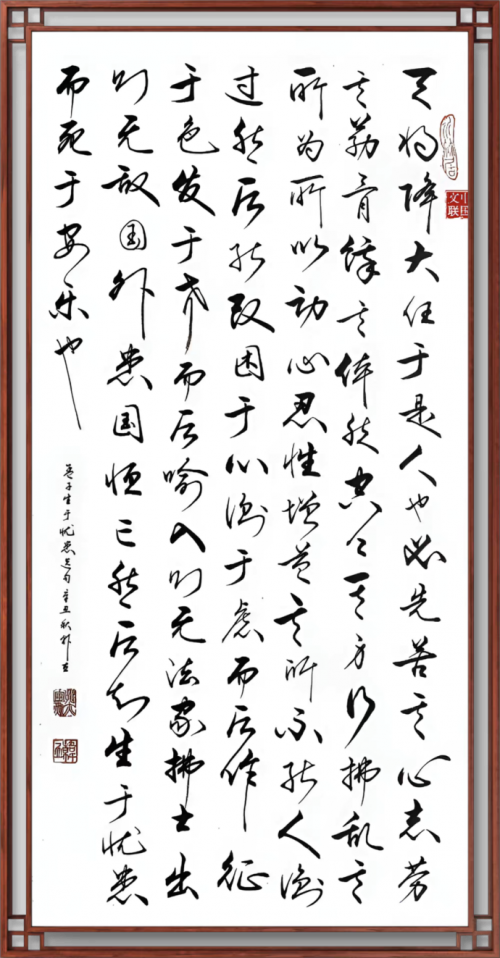 天将降大任于是人也必先苦其心志劳
其筋骨饿其体肤空乏其身行拂乱其
所为所以动心忍性增益其所不能人衡
过然后能改困于心衡于虑而后作征
于色发于声而后喻入则无法家拂士出
则无敌国外患国恒亡然后知生于忧患
而死于安乐也
孟子生于忧患选句辛丑秋
中国文联